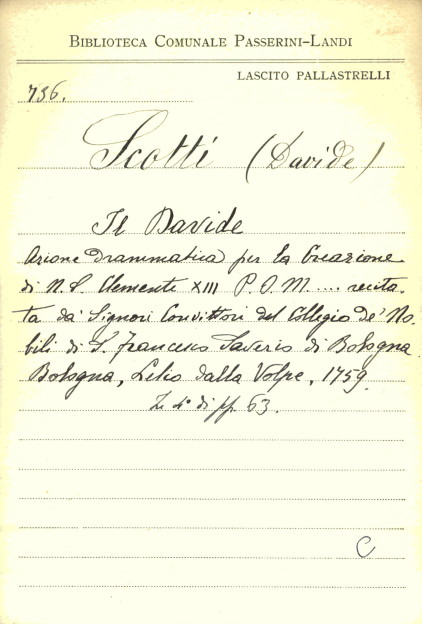 BIBLIOTECA COMUNALE PASSERINI-LANDI
LASCITO PALLASTRELLI
736.
Scotti (Davide)
Il Davide
Azione Drammatica per la Creazione
di N. S. Clemente XIII P. O. M. .... recita-
ta da' Signori Convittori del Collegio de' No-
bili di S. Francesco Saverio di Bologna
Bologna, Lelio dalla Volpe, 1759.
In 4° di pp. 63.
C